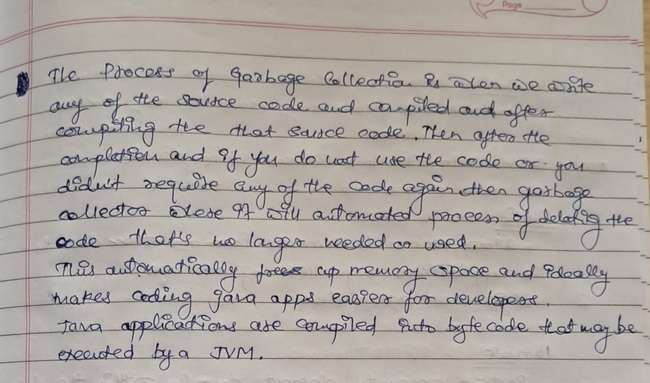 Page
The Process of Garbage Collection is when we write
any of the source code and compiled and after
compiling the that source code. Then after the
completion and if you do not use the code or you
didn't require any of the code again then garbage
collector these it will automated process of delating the
code that's no longer needed or used.
This automatically frees up memory space and ideally
makes coding java apps easier for developers.
Java applications are compiled into bytecode that may be
executed by a JVM.